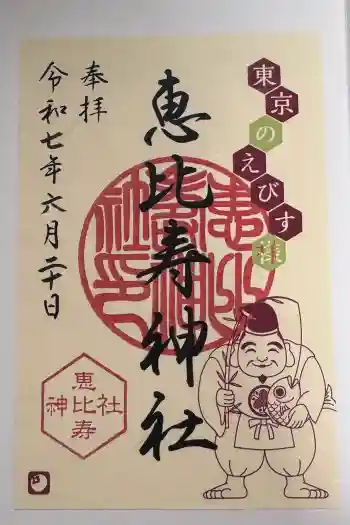 東京のえびす様
奉拝
恵比寿神社
令和七年六月二十日
恵比寿
神社